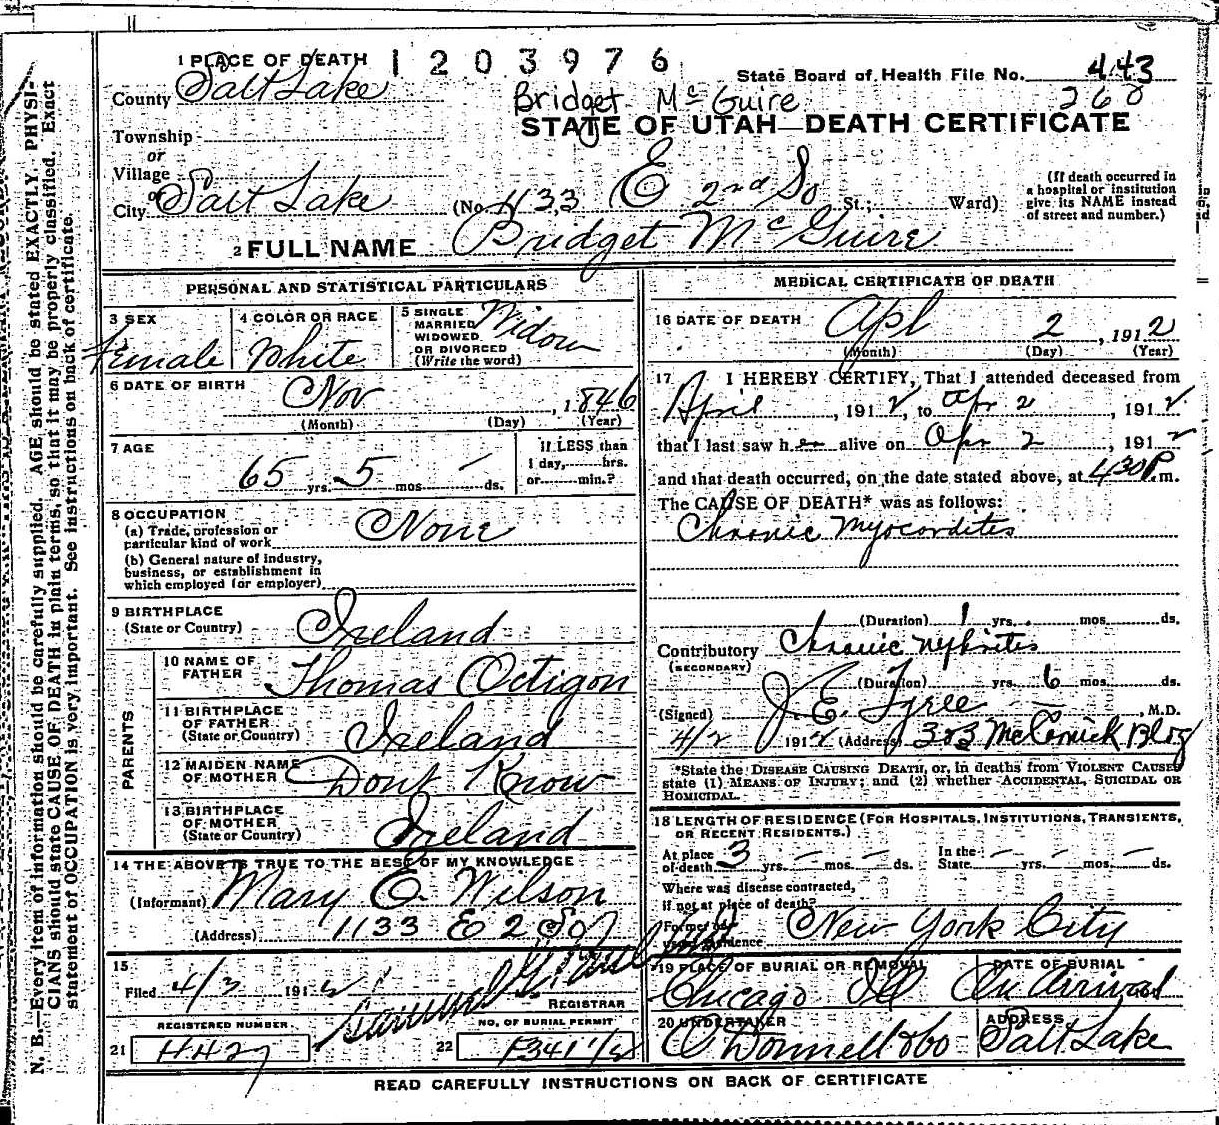 1 PLACE OF DEATH 1203976
State Board of Health File No. 443
County Salt Lake
Bridget McGuire 260
STATE OF UTAH—DEATH CERTIFICATE
Township
or
Village
or
City Salt Lake (No. 1133 E 2nd So St.; Ward)
(If death occurred in a hospital or institution give its NAME instead of street and number.)
2 FULL NAME Bridget McGuire
PERSONAL AND STATISTICAL PARTICULARS
3 SEX Female
4 COLOR OR RACE White
5 SINGLE MARRIED WIDOWED OR DIVORCED (Write the word) Widow
6 DATE OF BIRTH Nov , 1846
(Month) (Day) (Year)
7 AGE 65 yrs. 5 mos. — ds.
If LESS than 1 day, hrs. or min.?
8 OCCUPATION
(a) Trade, profession or particular kind of work None
(b) General nature of industry, business, or establishment in which employed (or employer)
9 BIRTHPLACE
(State or Country) Ireland
PARENTS
10 NAME OF FATHER Thomas Octigon
11 BIRTHPLACE OF FATHER (State or Country) Ireland
12 MAIDEN NAME OF MOTHER Dont Know
13 BIRTHPLACE OF MOTHER (State or Country) Ireland
14 THE ABOVE IS TRUE TO THE BEST OF MY KNOWLEDGE
(Informant) Mary E. Wilson
(Address) 1133 E 2 So
15
Filed 4/3 1912
REGISTRAR
REGISTERED NUMBER
21 HH27
NO. OF BURIAL PERMIT
22
MEDICAL CERTIFICATE OF DEATH
16 DATE OF DEATH Apl 2 , 1912
(Month) (Day) (Year)
17 I HEREBY CERTIFY, That I attended deceased from
April , 1912, to Apr 2 , 1912
that I last saw her alive on Apr 2 , 1912
and that death occurred, on the date stated above, at 430 P.m.
The CAUSE OF DEATH* was as follows:
Chronic Myocordites
(Duration) 1 yrs. mos. ds.
Contributory Chronic Nephrites
(SECONDARY)
(Duration) yrs. 6 mos. ds.
(Signed) J. E. Tyree , M.D.
4/2 1912 (Address) 323 McCornick Bldg
*State the DISEASE CAUSING DEATH, or, in deaths from VIOLENT CAUSES state (1) MEANS OF INJURY; and (2) whether ACCIDENTAL, SUICIDAL OR HOMICIDAL.
18 LENGTH OF RESIDENCE (FOR HOSPITALS, INSTITUTIONS, TRANSIENTS, OR RECENT RESIDENTS.)
At place of death 3 yrs. — mos. — ds. In the State — yrs. — mos. — ds.
Where was disease contracted, if not at place of death?
Former or usual residence New York City
19 PLACE OF BURIAL OR REMOVAL Chicago Ill
DATE OF BURIAL On Arrival
20 UNDERTAKER O'Donnell & Co
ADDRESS Salt Lake
READ CAREFULLY INSTRUCTIONS ON BACK OF CERTIFICATE
N. B.—Every item of information should be carefully supplied. AGE should be stated EXACTLY. PHYSI-
CIANS should state CAUSE OF DEATH in plain terms, so that it may be properly classified. Exact
statement of OCCUPATION is very important. See instructions on back of certificate.